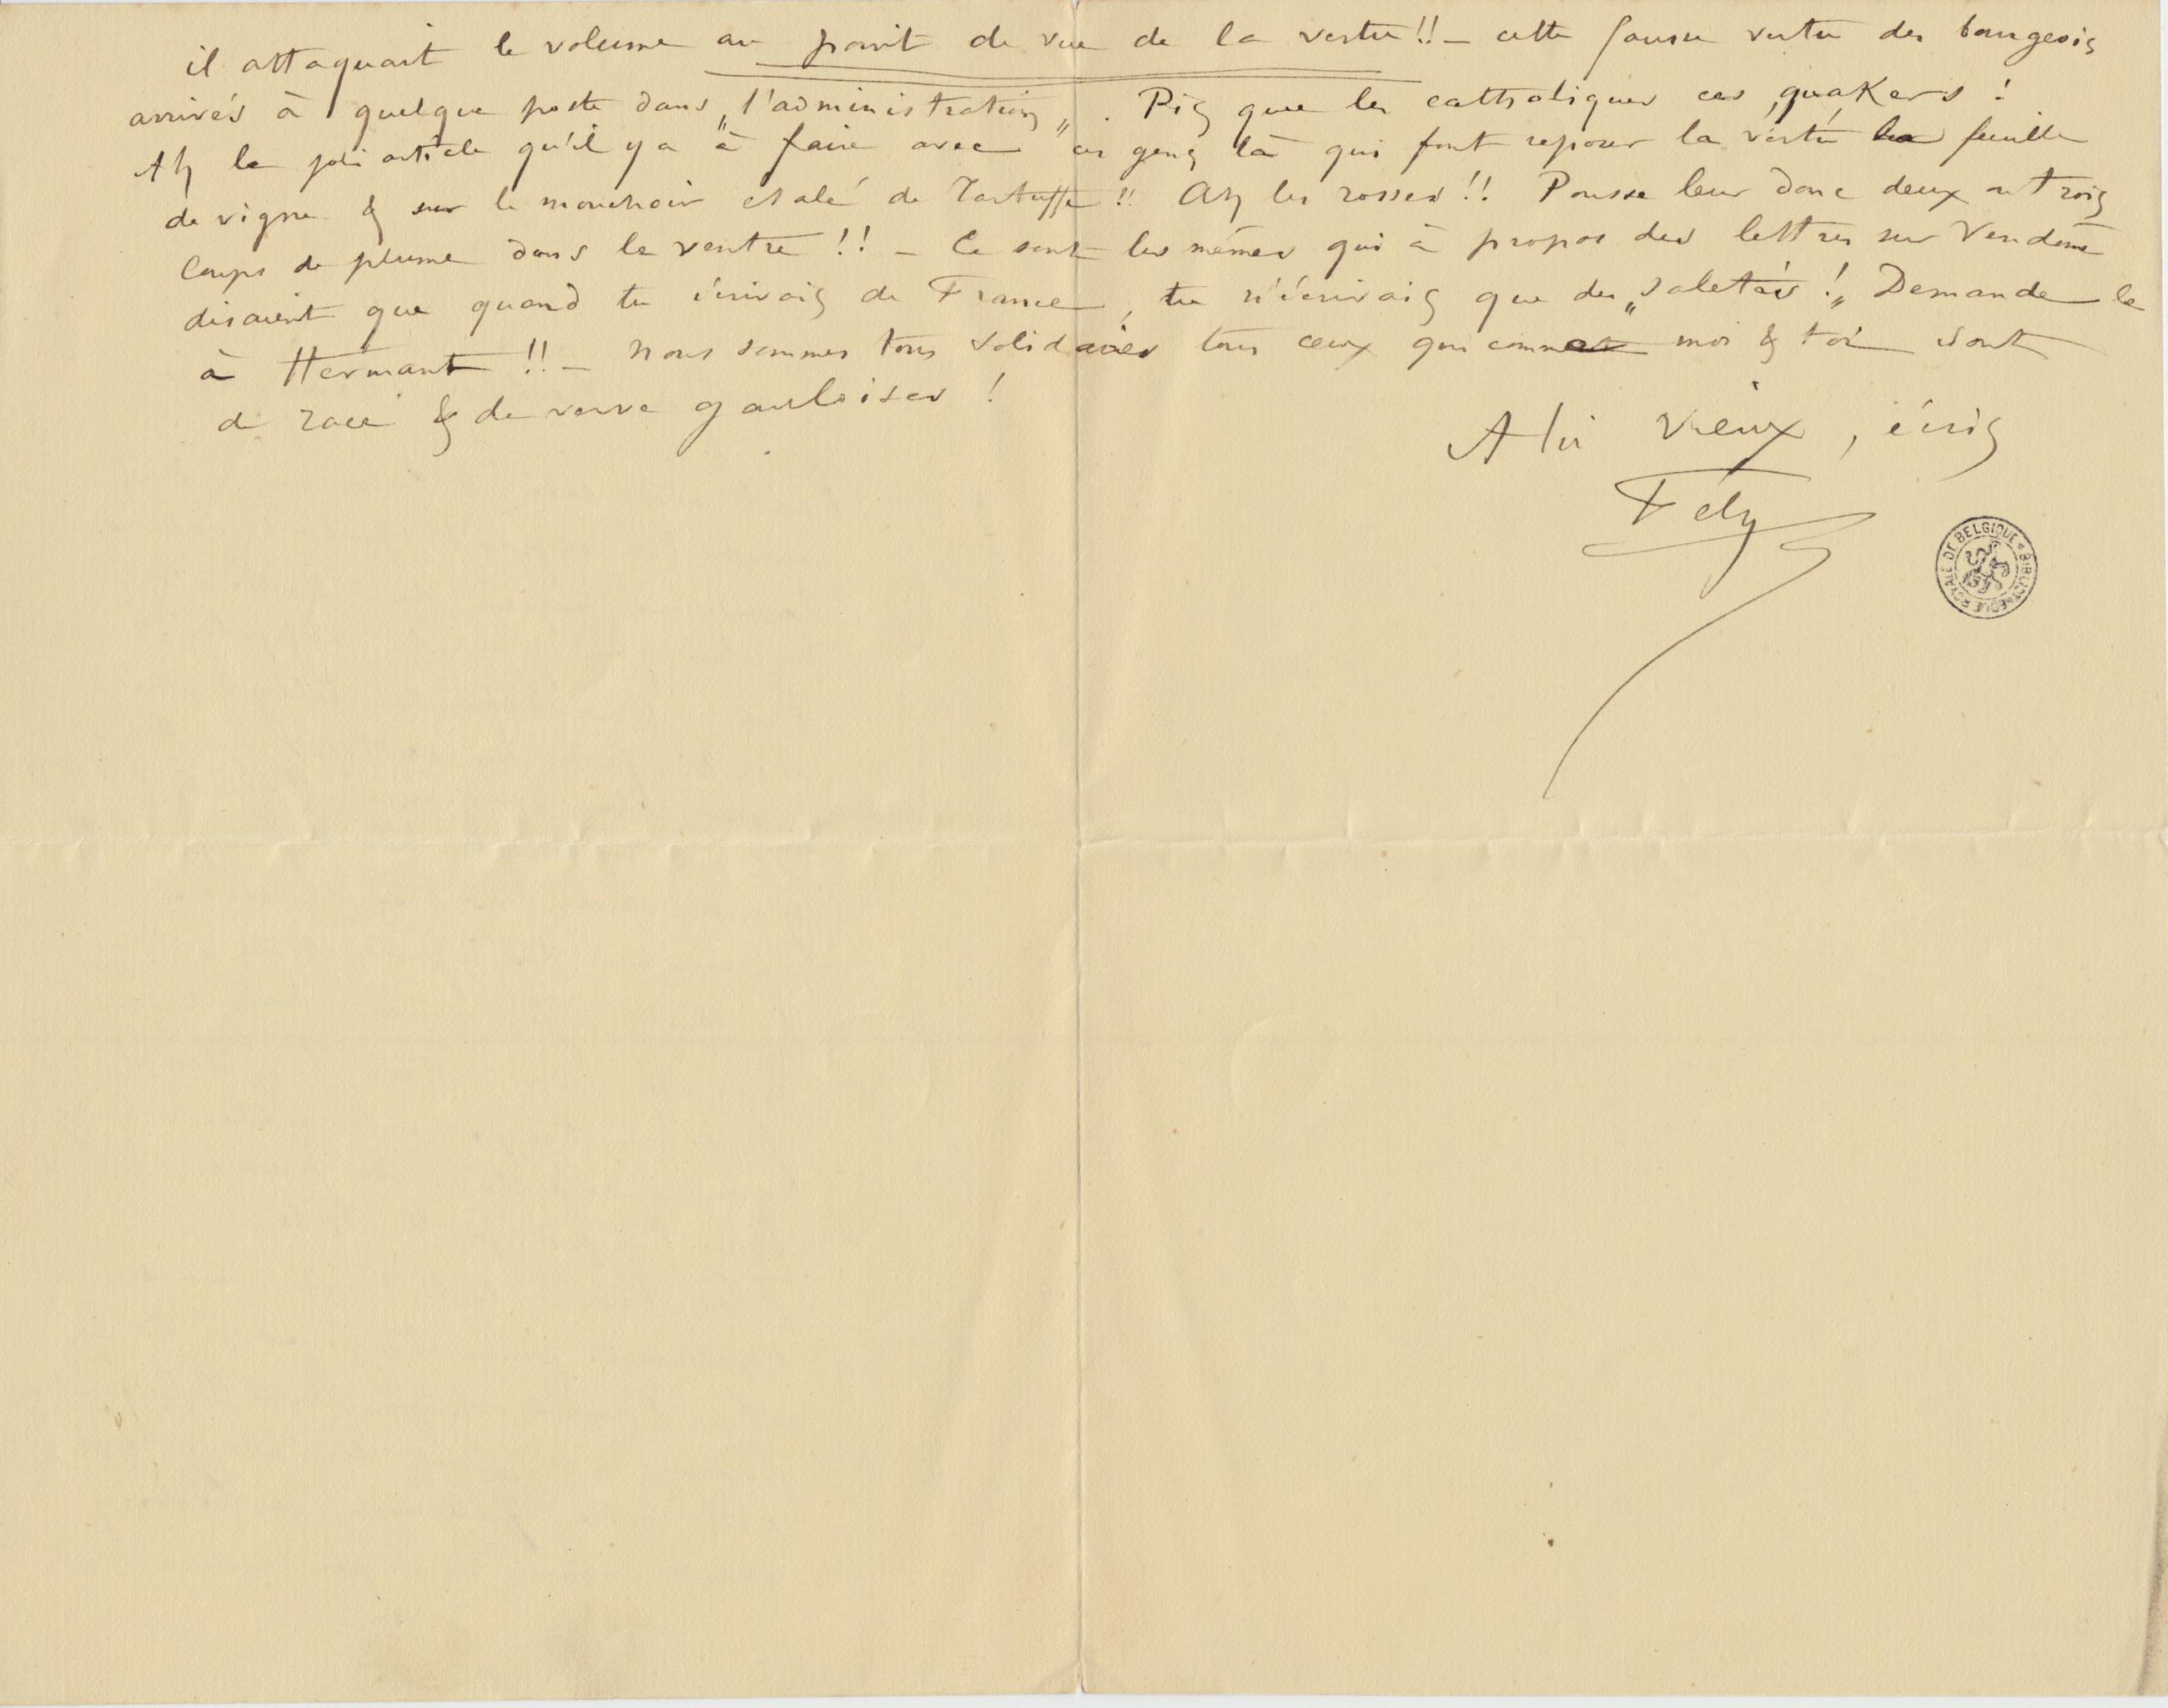 il attaquait le volume au point de vue de la vertu!! – cette fausse vertu des bourgeois
arrivés à quelque poste dans „l'administration„. Pis que les catholiques ces quakers !
Ah le joli article qu'il y a à faire avec ces gens là qui font reposer la vertu la feuille
de vigne & sur le mouchoir étalé de Tartuffe !! Ah les rosses !! Pousse leur donc deux ou trois
coups de plume dans le ventre !! – Ce sont les mêmes qui à propos des lettres sur Vendôme
disaient que quand tu écrivais de France, tu n'écrivais que des „saletés !„ Demande le
à Hermant !! – Nous sommes tous solidaires tous ceux qui comme moi & toi sont
de race & de verve gauloises !
A toi vieux, écris
Fély
BIBLIOTHEQUE ROYALE DE BELGIQUE